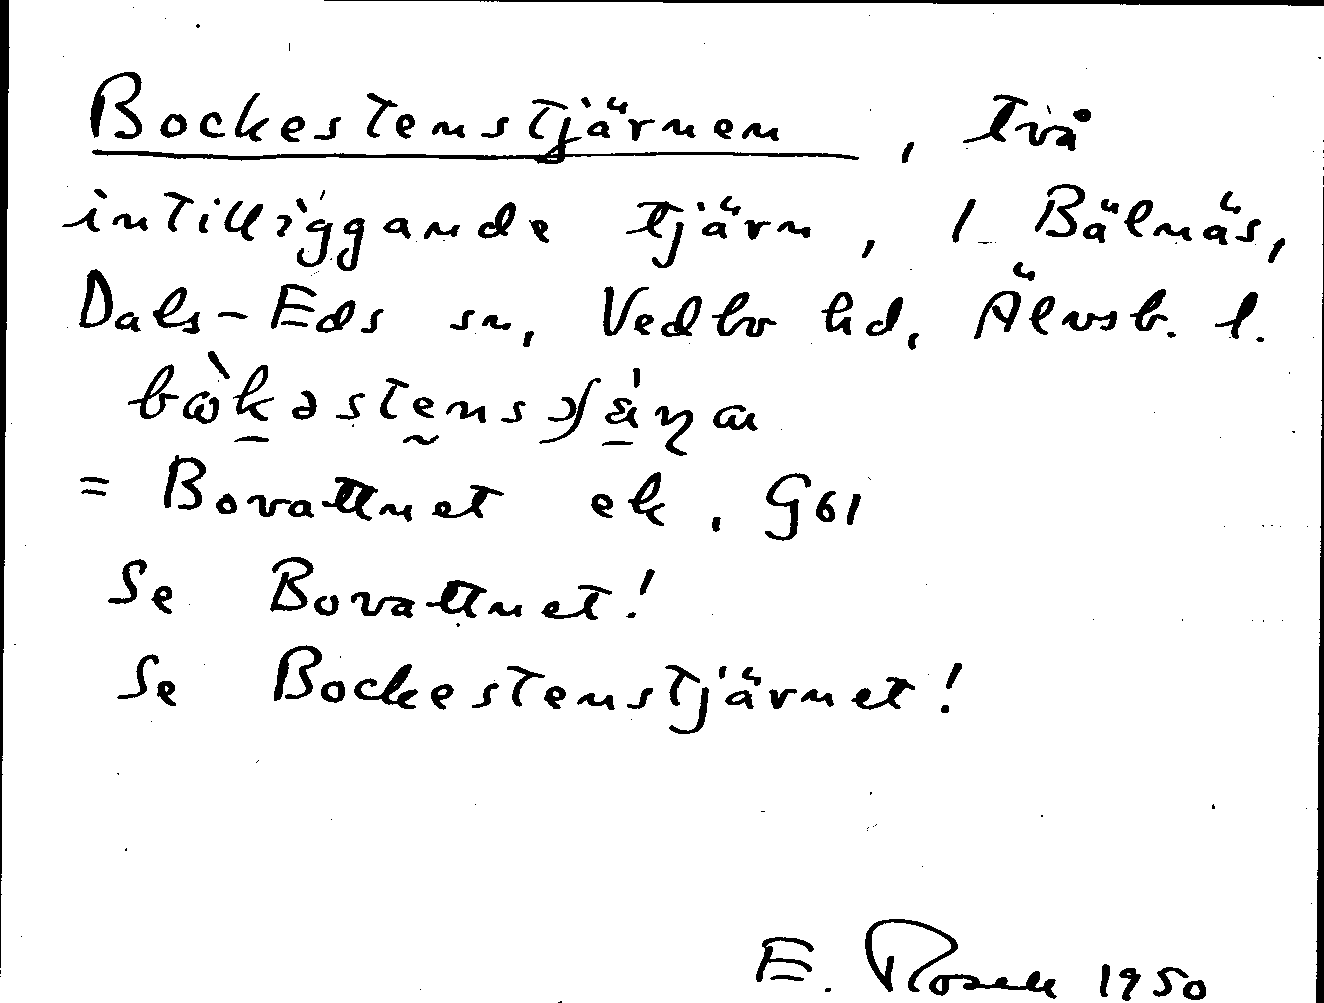 Bockestenstjärnen, två
intilliggande tjärn, 1 Bälnäs,
Dals-Eds sn, Vedbo hd, Älvsb. l.
= Bovattnet ek, G61
Se Bovattnet!
Se Bockestenstjärnet!
E. Rosell 1950